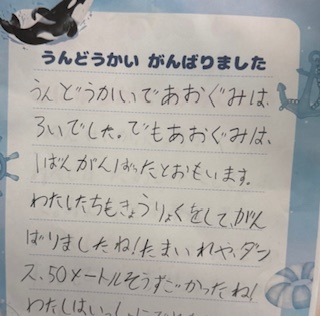 うんどうかい がんばりました
うんどうかいであおぐみは、
ろいでした。でもあおぐみは、
1ばんがんばったとおもいます。
わたしたちもきょうりょくをして、がん
ばりましたね!たまいれや、ダン
ス、50メートルそうすごかったね!
わたしはいっしょに